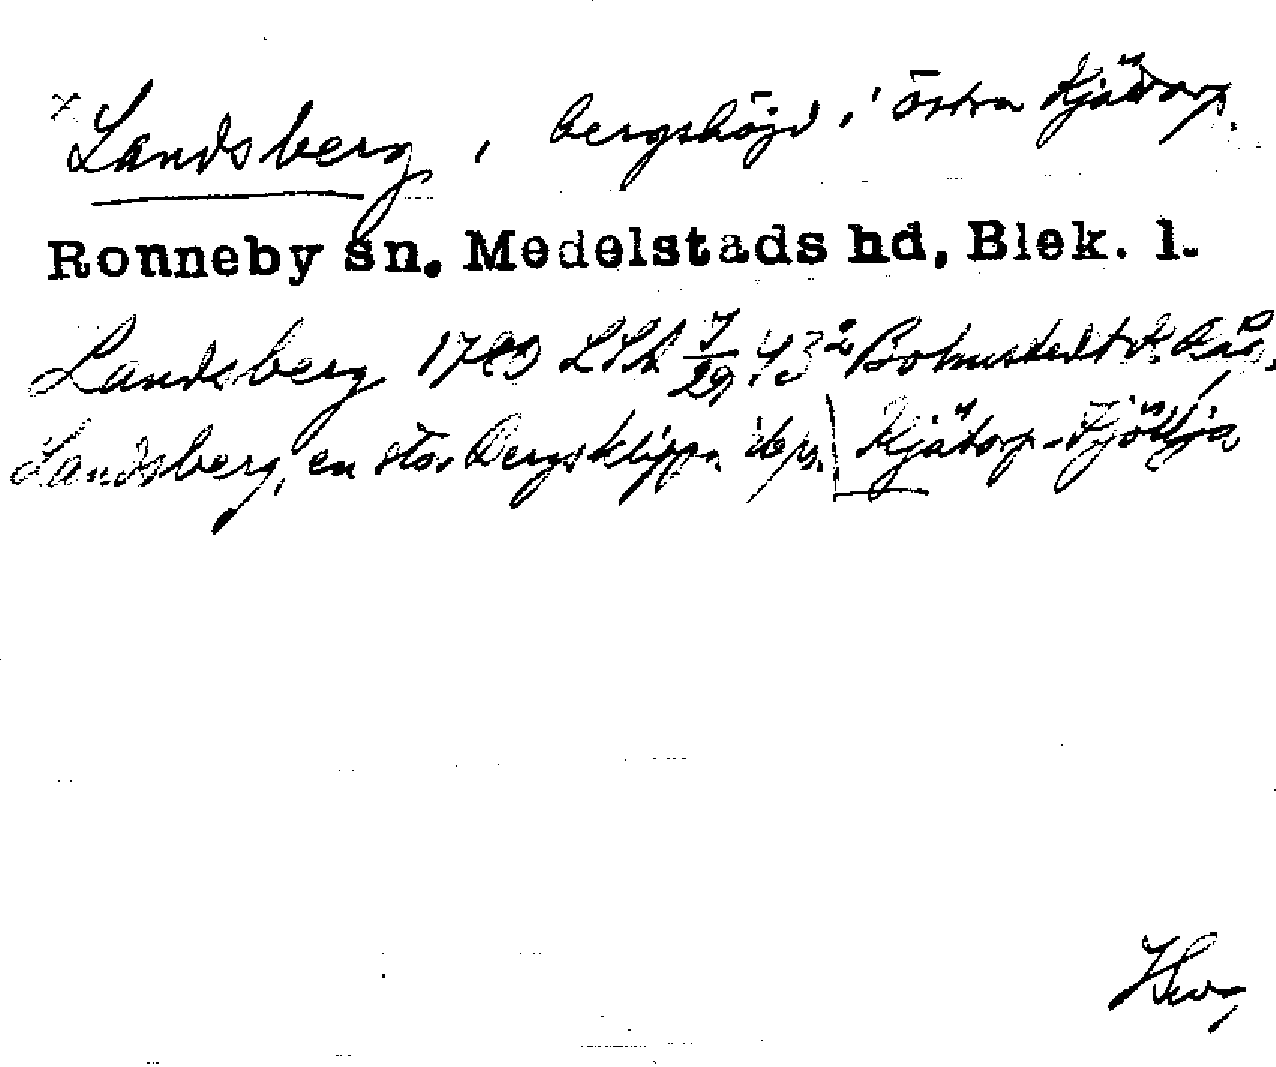 Landsberg, bergshöjd, i östra Kjätorp.
Ronneby sn. Medelstads hd, Blek. l.
Landsberg 1783 LSA 7/29 .43² Bohustedt
Landsberg, en stor Bergsklippa Kjätorp-